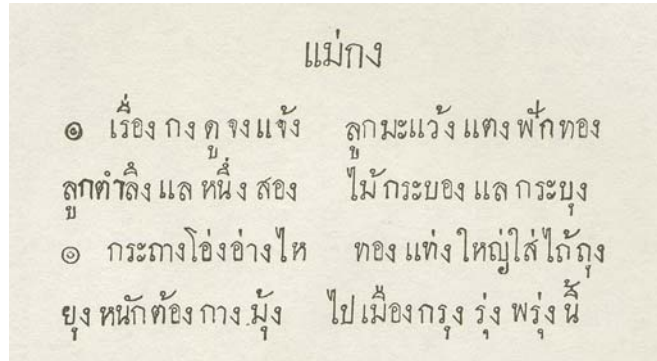 แม่กง
๏ เรื่อง กง ดู จง แจ้ง ลูกมะแว้ง แตง ฟักทอง
ลูกตำลึง แล หนึ่ง สอง ไม้กระบอง แล กระบุง
๏ กระถางโอ่งอ่างไห ทอง แท่ง ใหญ่ใส่ไถ้ถุง
ยุง หนักต้อง กาง มุ้ง ไปเมืองกรุง รุ่ง พรุ่ง นี้